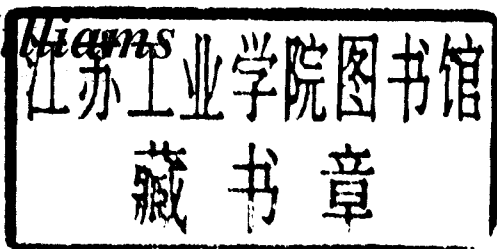 lliams
江苏工业学院图书馆
藏书章